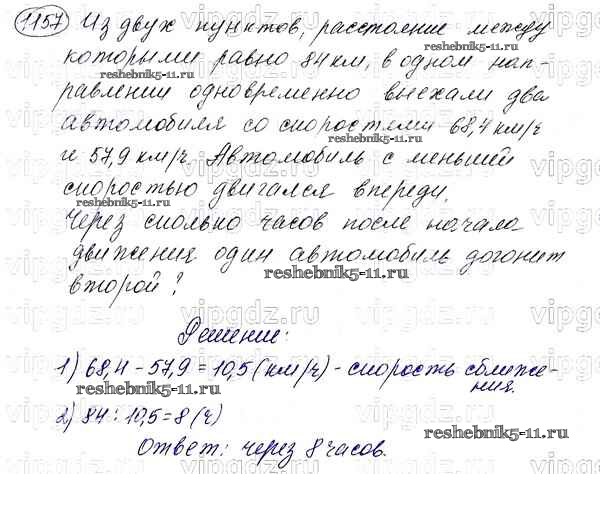 1157 Из двух пунктов, расстояние между
которыми равно 84 км, в одном нап-
reshebnik5-11.ru
равлении одновременно выехали два
автомобиля со скоростями 68,4 км/ч
и 57,9 км/ч. Автомобиль с меньшей
скоростью двигался впереди.
reshebnik5-11.ru
Через сколько часов после начала
движения один автомобиль догонит
reshebnik5-11.ru
второй?
Решение:
1) 68,4 - 57,9 = 10,5 (км/ч) - скорость сближе-
ния.
reshebnik5-11.ru
2) 84 : 10,5 = 8 (ч)
reshebnik5-11.ru
Ответ: через 8 часов.